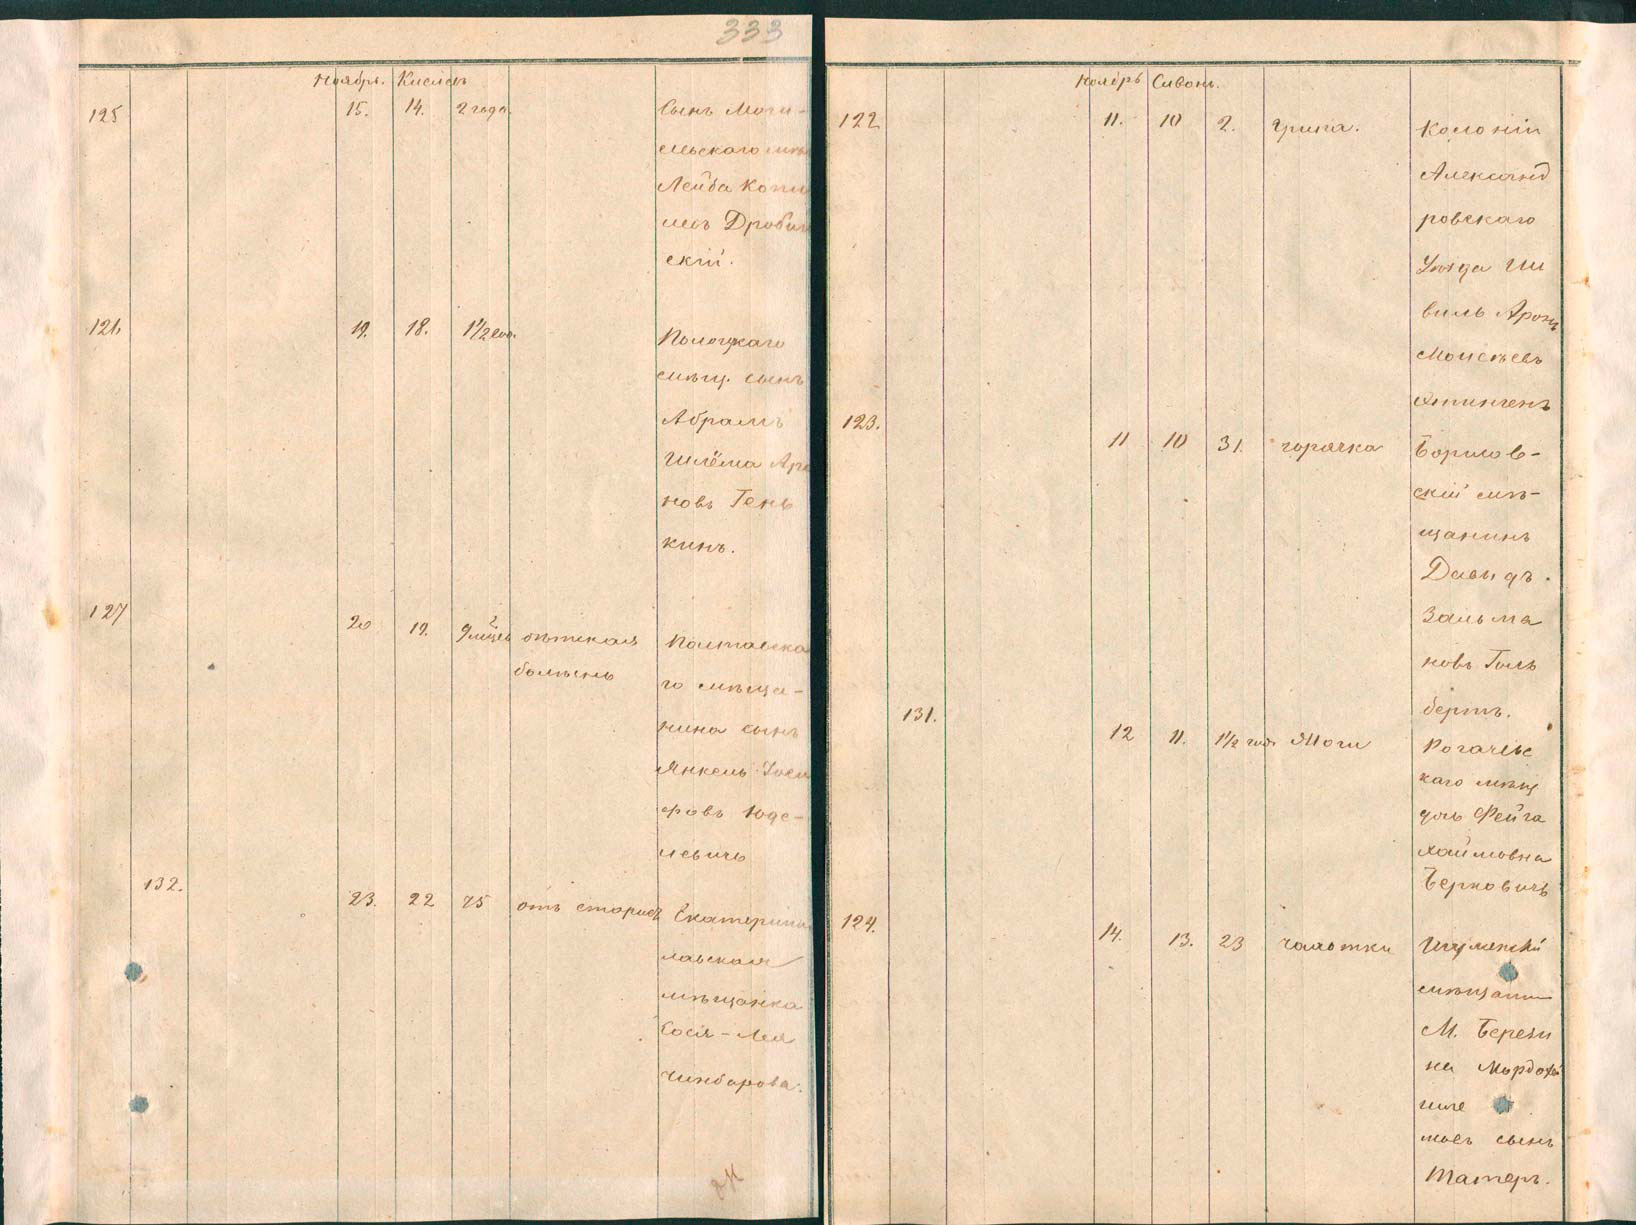 333
Ноябрь. Кислевъ
125 15. 14. 2 года. Сынъ Моги-
левскаго мѣщ
Лейба
Дробин
скій.
126 19. 18. 1½ год. Полоцкаго
мѣщ. сынъ
Абрамъ
Шлёма Аро
новъ Генъ
кинъ.
127 20 19. 9 мѣсяц дѣтская Полтавска
болѣзнь го мѣща-
нина сынъ
Янкель Іоси
фовъ Юде-
левичъ
132. 23. 22 75 отъ старости Екатерино
лавская
мѣщанка
Сося-Лея
Чинбарова.
Ноябрь
122 11. 10 2. грипа. Колоніи
Александ
ровскаго
Уѣзда
Аронъ
Моисѣевъ
123. 11 10 31. горячка Борисов-
скій мѣ-
щанинъ
Давидъ.
Зальма
новъ Голь
бертъ.
131. 12 11. 1½ год. Рогачевс
каго мѣщ
дочь Фейга
Хаймовна
Берковичъ
124. 14. 13. 23 чахотки Игуменскій
мѣщанин
М. Берези
на Мордохай
сынъ